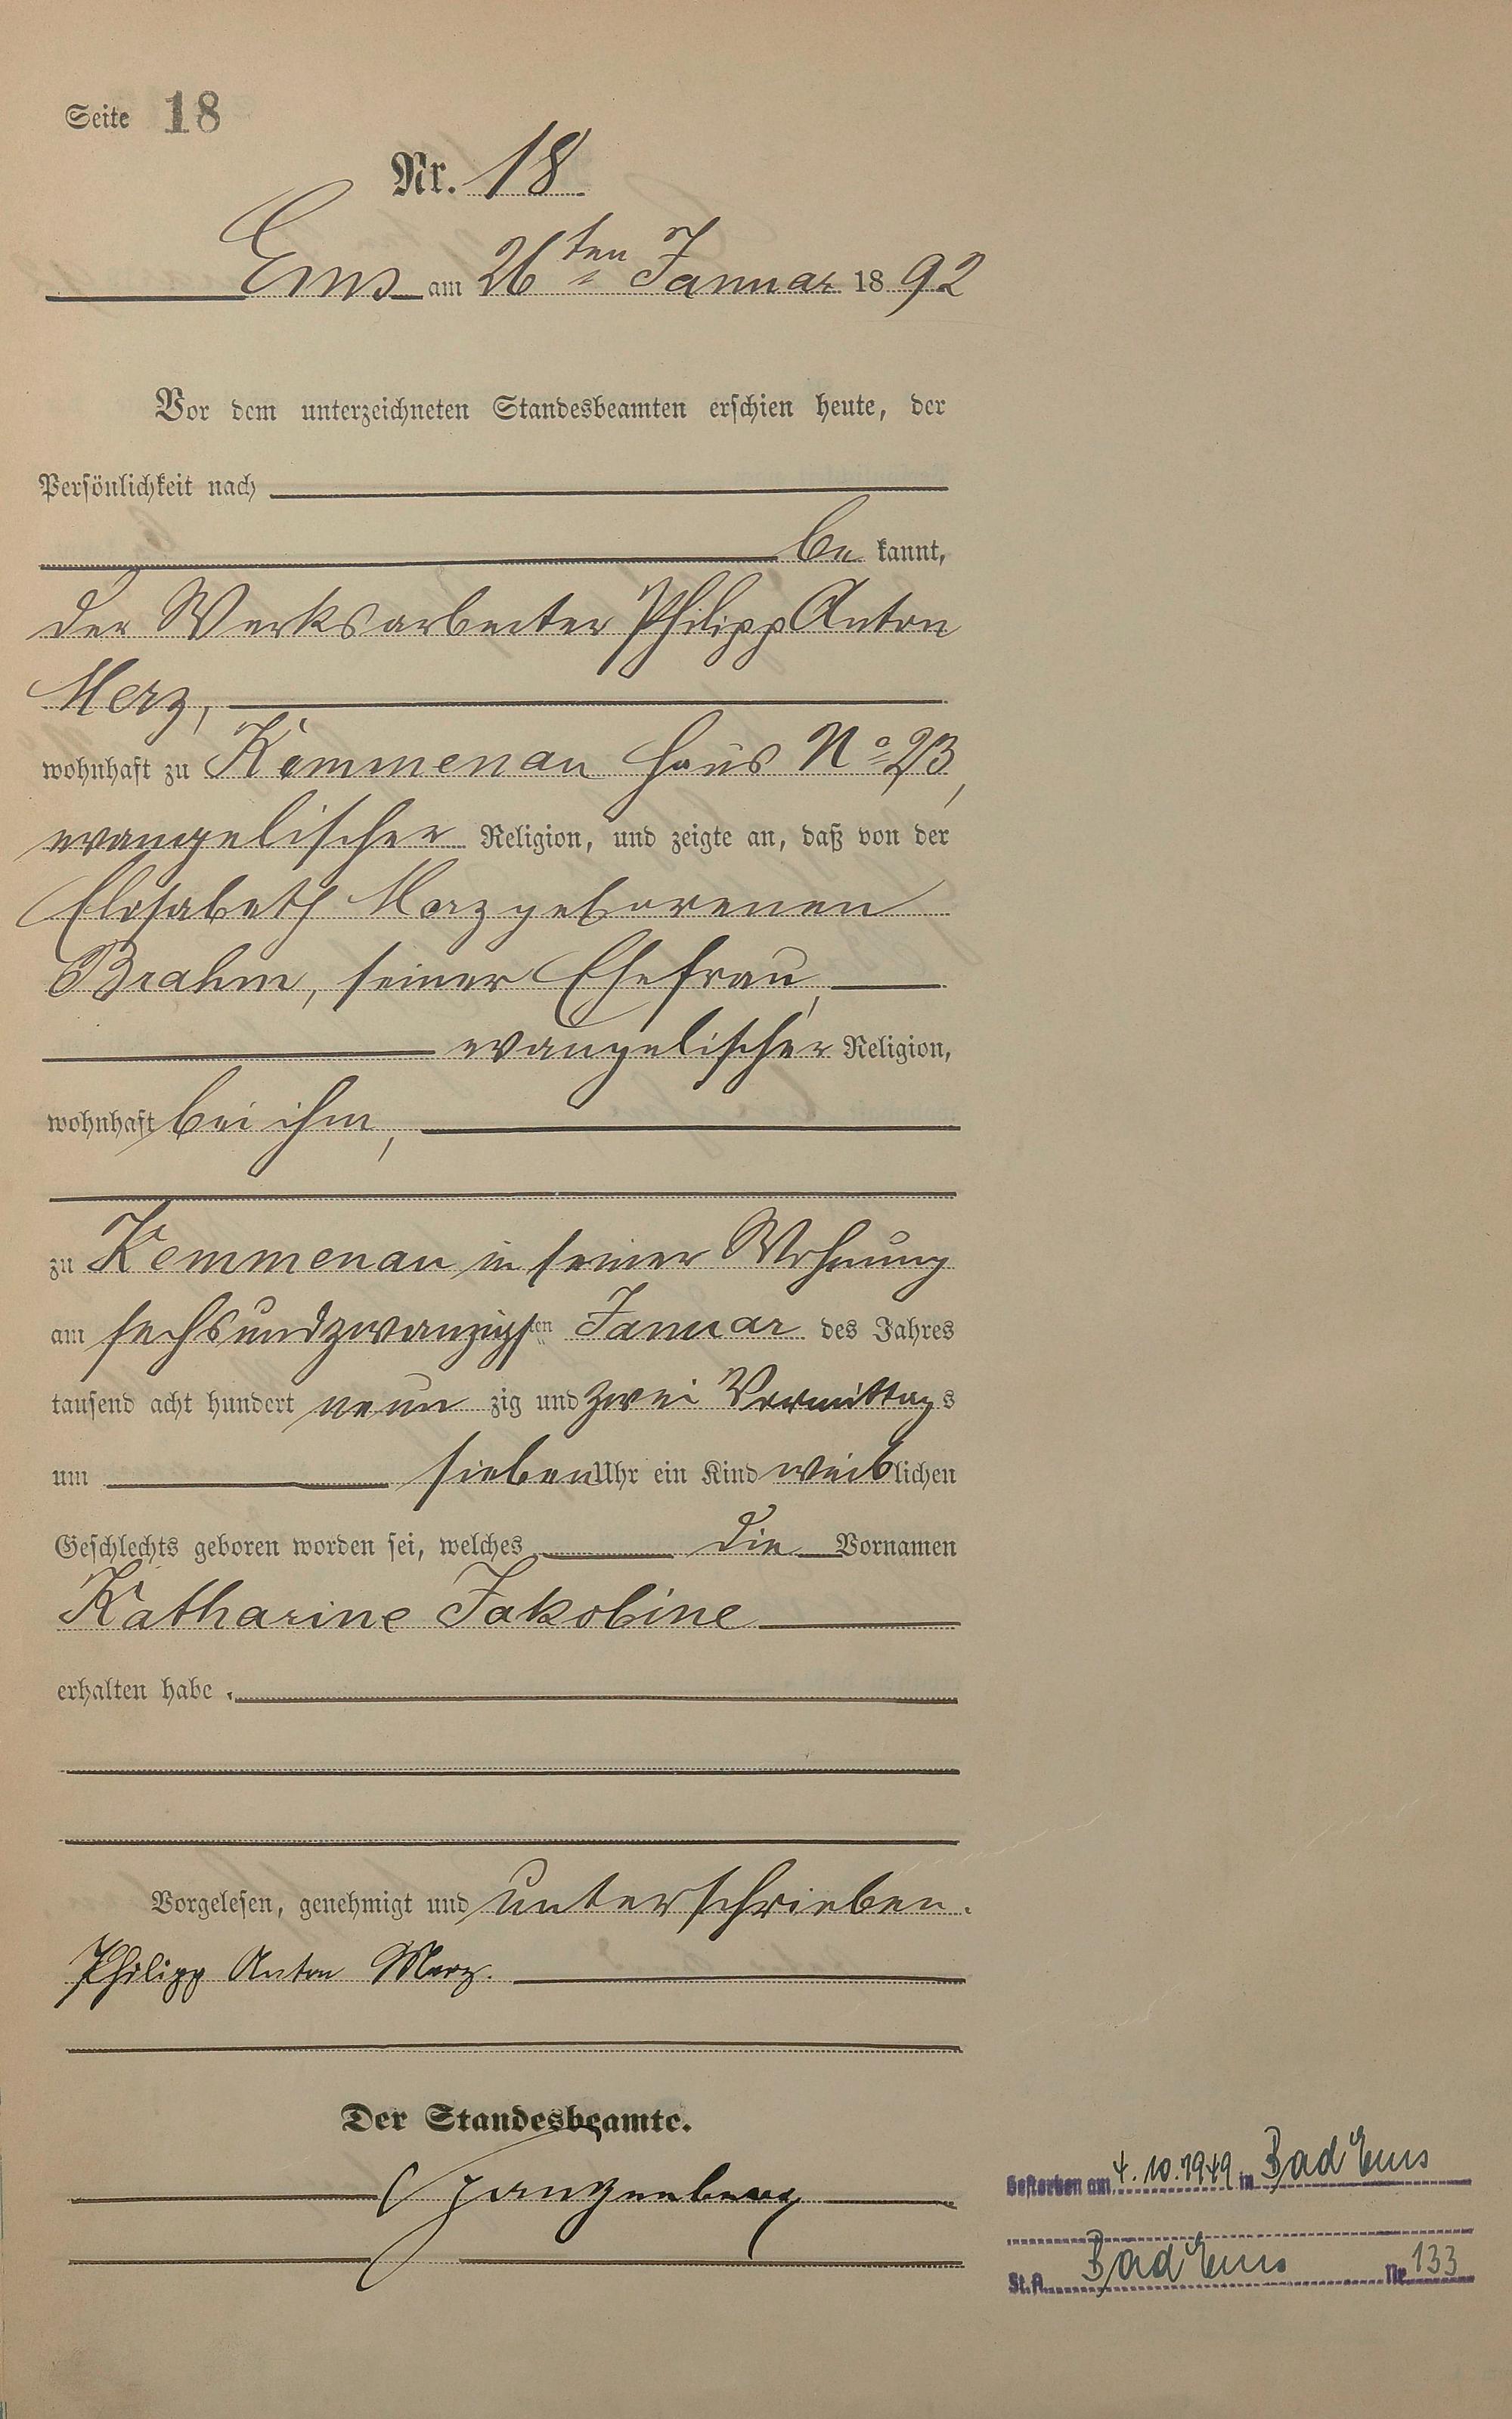 Seite 18
Nr. 18
Ems am 26ten Januar 1892
Vor dem unterzeichneten Standesbeamten erschien heute, der
Persönlichkeit nach
be kannt,
der Werksarbeiter Philipp Anton
Merz,
wohnhaft zu Kemmenau Haus No 23,
evangelischer Religion, und zeigte an, daß von der
Elisabeth Merz geborenen
Brahm, seiner Ehefrau,
evangelischer Religion,
wohnhaft bei ihm,
zu Kemmenau in seiner Wohnung
am sechsundzwanzigsten Januar des Jahres
tausend acht hundert neun zig und zwei Vormittags
um sieben Uhr ein Kind weiblichen
Geschlechts geboren worden sei, welches die Vornamen
Katharine Jakobine
erhalten habe.
Vorgelesen, genehmigt und unterschrieben.
Philipp Anton Merz.
Der Standesbeamte.
Gestorben am 4.10.1949 in Bad Ems
St.A. Bad Ems Nr. 133